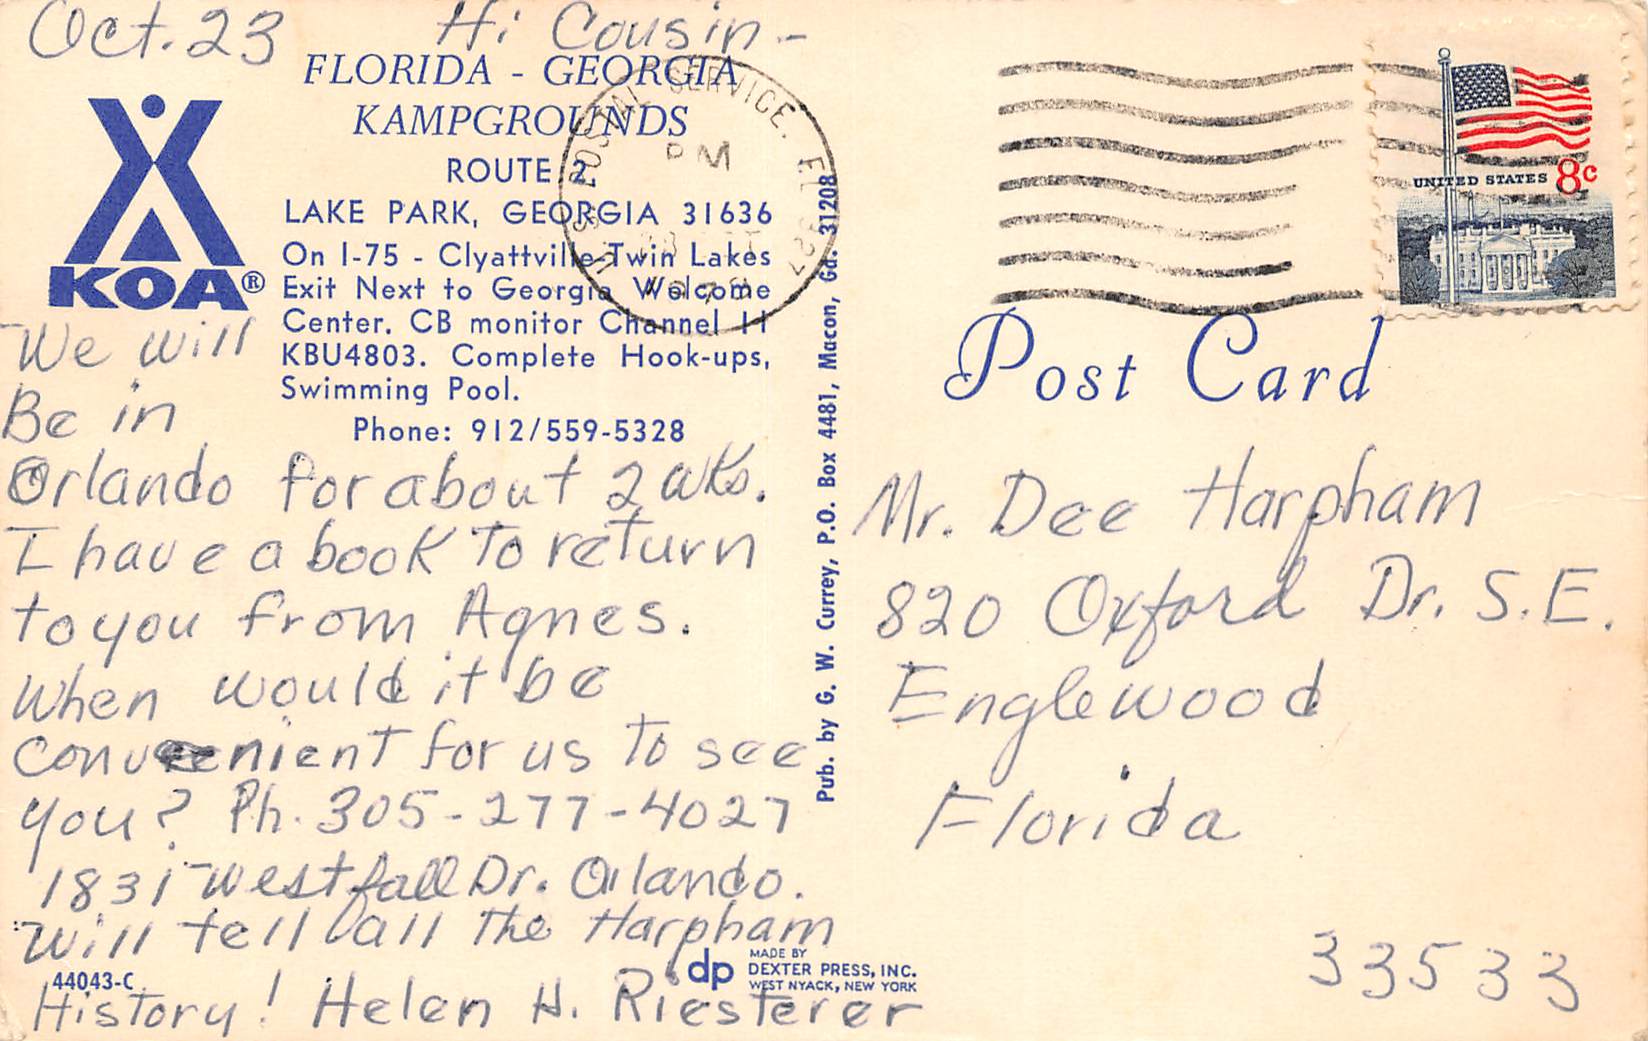 Oct. 23 Hi Cousin -
FLORIDA - GEORGIA
KAMPGROUNDS
ROUTE 2
LAKE PARK, GEORGIA 31636
On I-75 - Clyattville-Twin Lakes
Exit Next to Georgia Welcome
Center. CB monitor Channel 11
KBU4803. Complete Hook-ups,
Swimming Pool.
Phone: 912/559-5328
KOA®
We will
Be in
Orlando for about 2 wks.
I have a book to return
to you from Agnes.
When would it be
convenient for us to see
you? Ph. 305-277-4027
1831 Westfall Dr. Orlando.
Will tell all the Harpham
History! Helen H. Riesterer
44043-C
dp
MADE BY
DEXTER PRESS, INC.
WEST NYACK, NEW YORK
Pub. by G. W. Currey, P.O. Box 4481, Macon, Ga. 31208
U.S. POSTAL SERVICE. FL 327
PM
UNITED STATES 8c
Post Card
Mr. Dee Harpham
820 Oxford Dr. S.E.
Englewood
Florida
33533